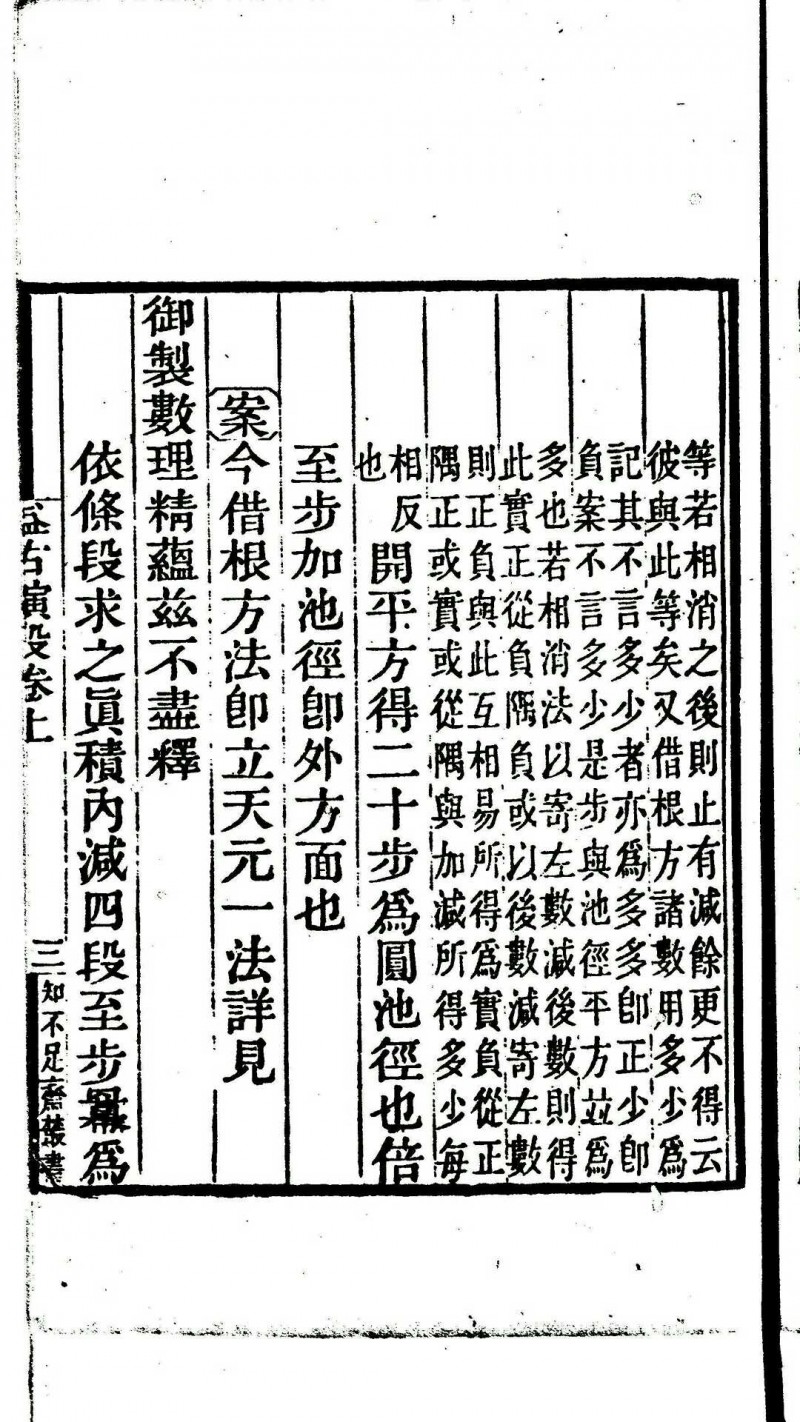 等若相消之後則止有減餘更不得云
彼與此等矣又借根方諸數用多少爲
記其不言多少者亦爲多多卽正少卽
負案不言多少是步與池徑平方竝爲
多也若相消法以寄左數減後數則得
此實正從負隅負或以後數減寄左數
則正負與此互相易所得爲實負從正
隅正或實或從隅與加減所得多少每
相反
也
開平方得二十步爲圓池徑也倍
至步加池徑卽外方面也
案今借根方法卽立天元一法詳見
御製數理精蘊茲不盡釋
依條段求之眞積內減四段至步冪爲
益古演段卷上
三
知不足齋叢書